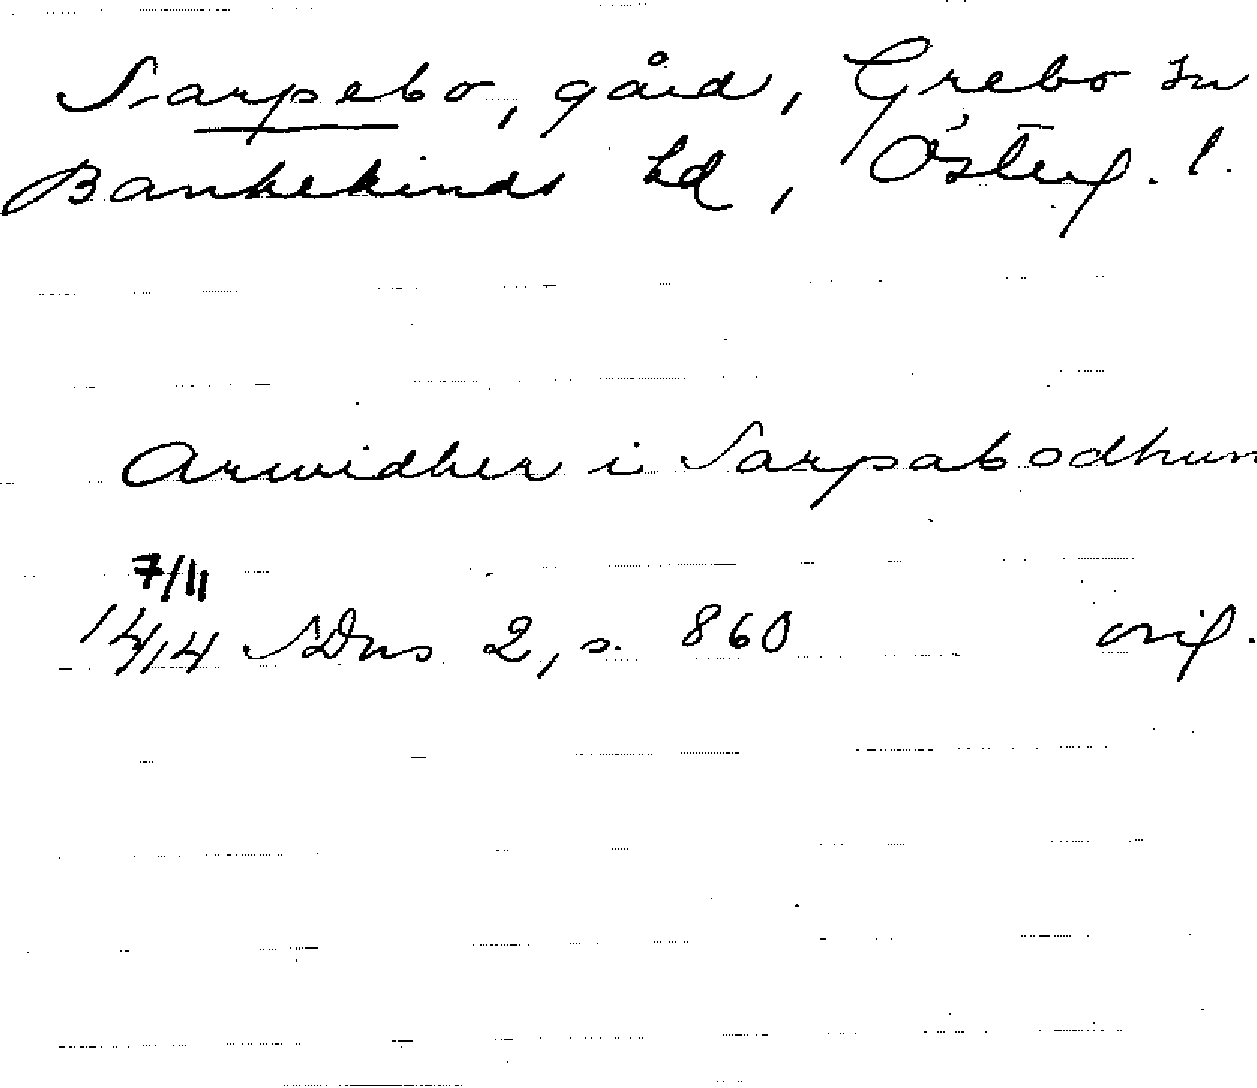 Sarpebo, gård, Grebo sn
Bankekinds hd, Österg. l.
Arwidher i Sarpabodhum
7/11
1414 SDns 2, s. 860 orig.